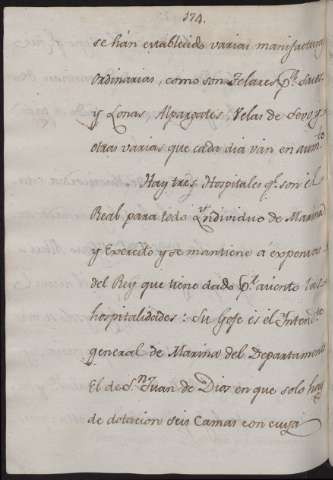 174.
se hán establecido varias manifacturas
ordinarias, como son Telares p.ª
y Lonas, Alpargates, Velas de Sevo, y
otras varias que cada dia ván en aum.to
Hay tres Hospitales q.e son el
Real para todo Yndividuo de Marina
y Exercito y se mantiene á expensas
del Rey que tiene dado p.r aciento las
hospitalidades: Su Gefe és el Intend.te
general de Marina del Departamento
El de S.n Juan de Dios en que solo hay
de dotacion seis Camas con cuya